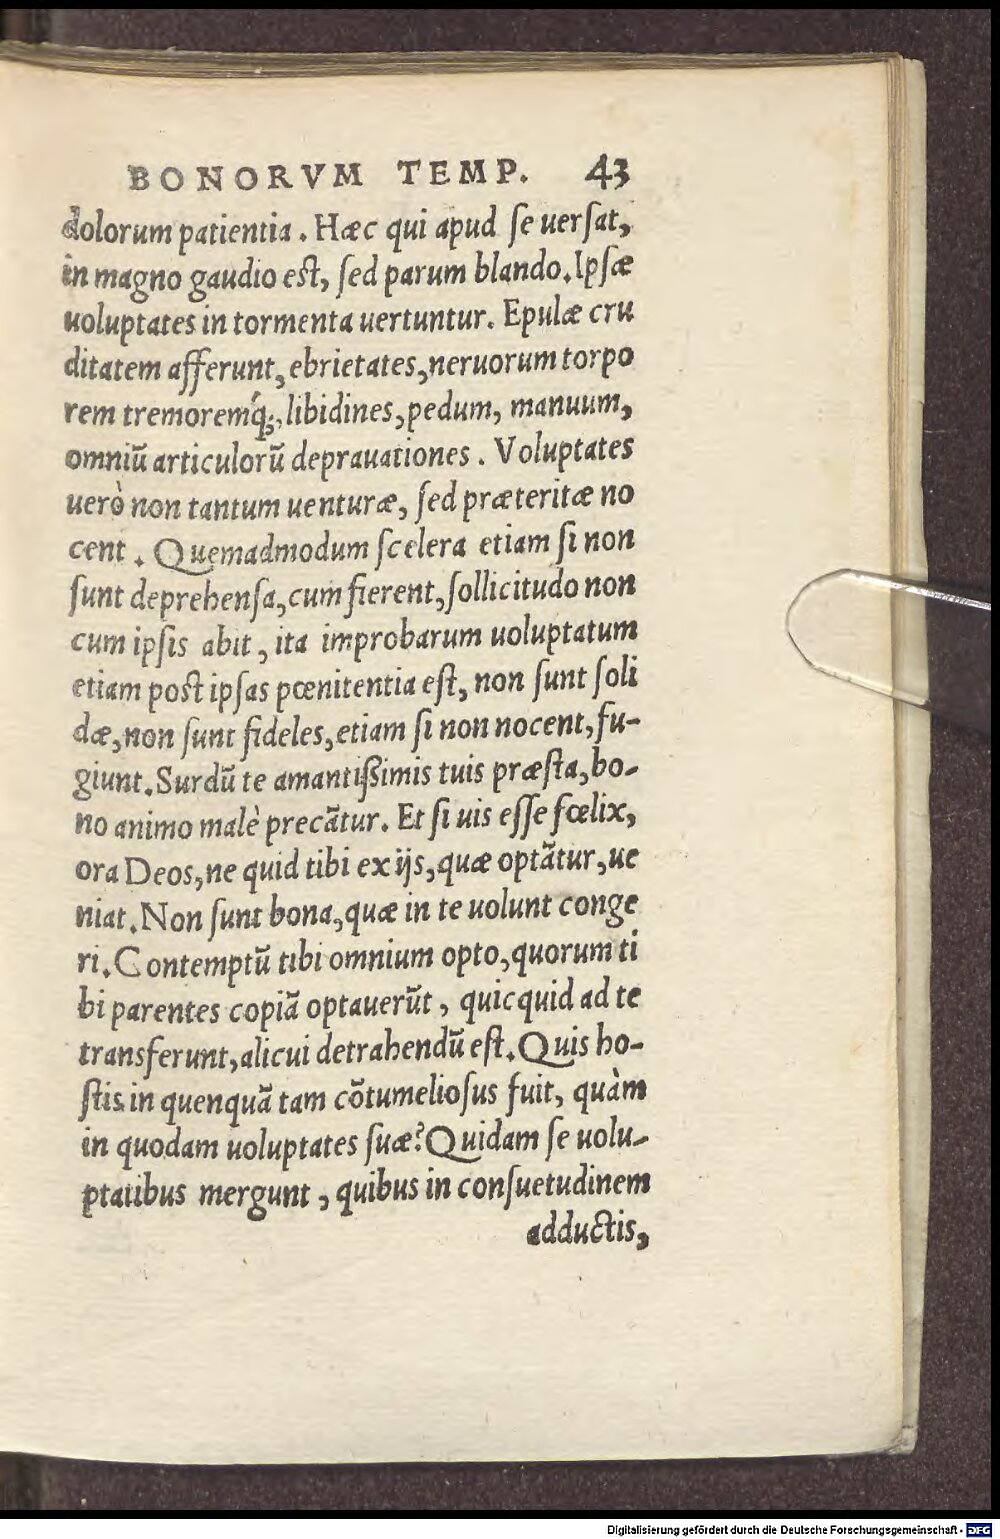 BONORVM TEMP. 43
dolorum patientia. Hæc qui apud ſe uerſat,
in magno gaudio eſt, ſed parum blando. Ipſæ
uoluptates in tormenta uertuntur. Epulæ cru
ditatem afferunt, ebrietates, neruorum torpo
rem tremoremq́;, libidines, pedum, manuum,
omniũ articulorũ deprauationes. Voluptates
uerò non tantum uenturæ, ſed præteritæ no
cent. Quemadmodum ſcelera etiam ſi non
ſunt deprehenſa, cum fierent, ſollicitudo non
cum ipſis abit, ita improbarum uoluptatum
etiam poſt ipſas pœnitentia eſt, non ſunt ſoli
dæ, non ſunt fideles, etiam ſi non nocent, fu-
giunt. Surdũ te amantißimis tuis præſta, bo-
no animo malè precãtur. Et ſi uis eſſe fœlix,
ora Deos, ne quid tibi ex ijs, quæ optãtur, ue
niat. Non ſunt bona, quæ in te uolunt conge
ri. Contemptũ tibi omnium opto, quorum ti
bi parentes copiã optauerũt, quicquid ad te
transferunt, alicui detrahendũ eſt. Quis ho-
ſtis in quenquã tam cõtumelioſus fuit, quàm
in quodam uoluptates ſuæ? Quidam ſe uolu-
ptatibus mergunt, quibus in conſuetudinem
adductis,
Digitalisierung gefördert durch die Deutsche Forschungsgemeinschaft - DFG